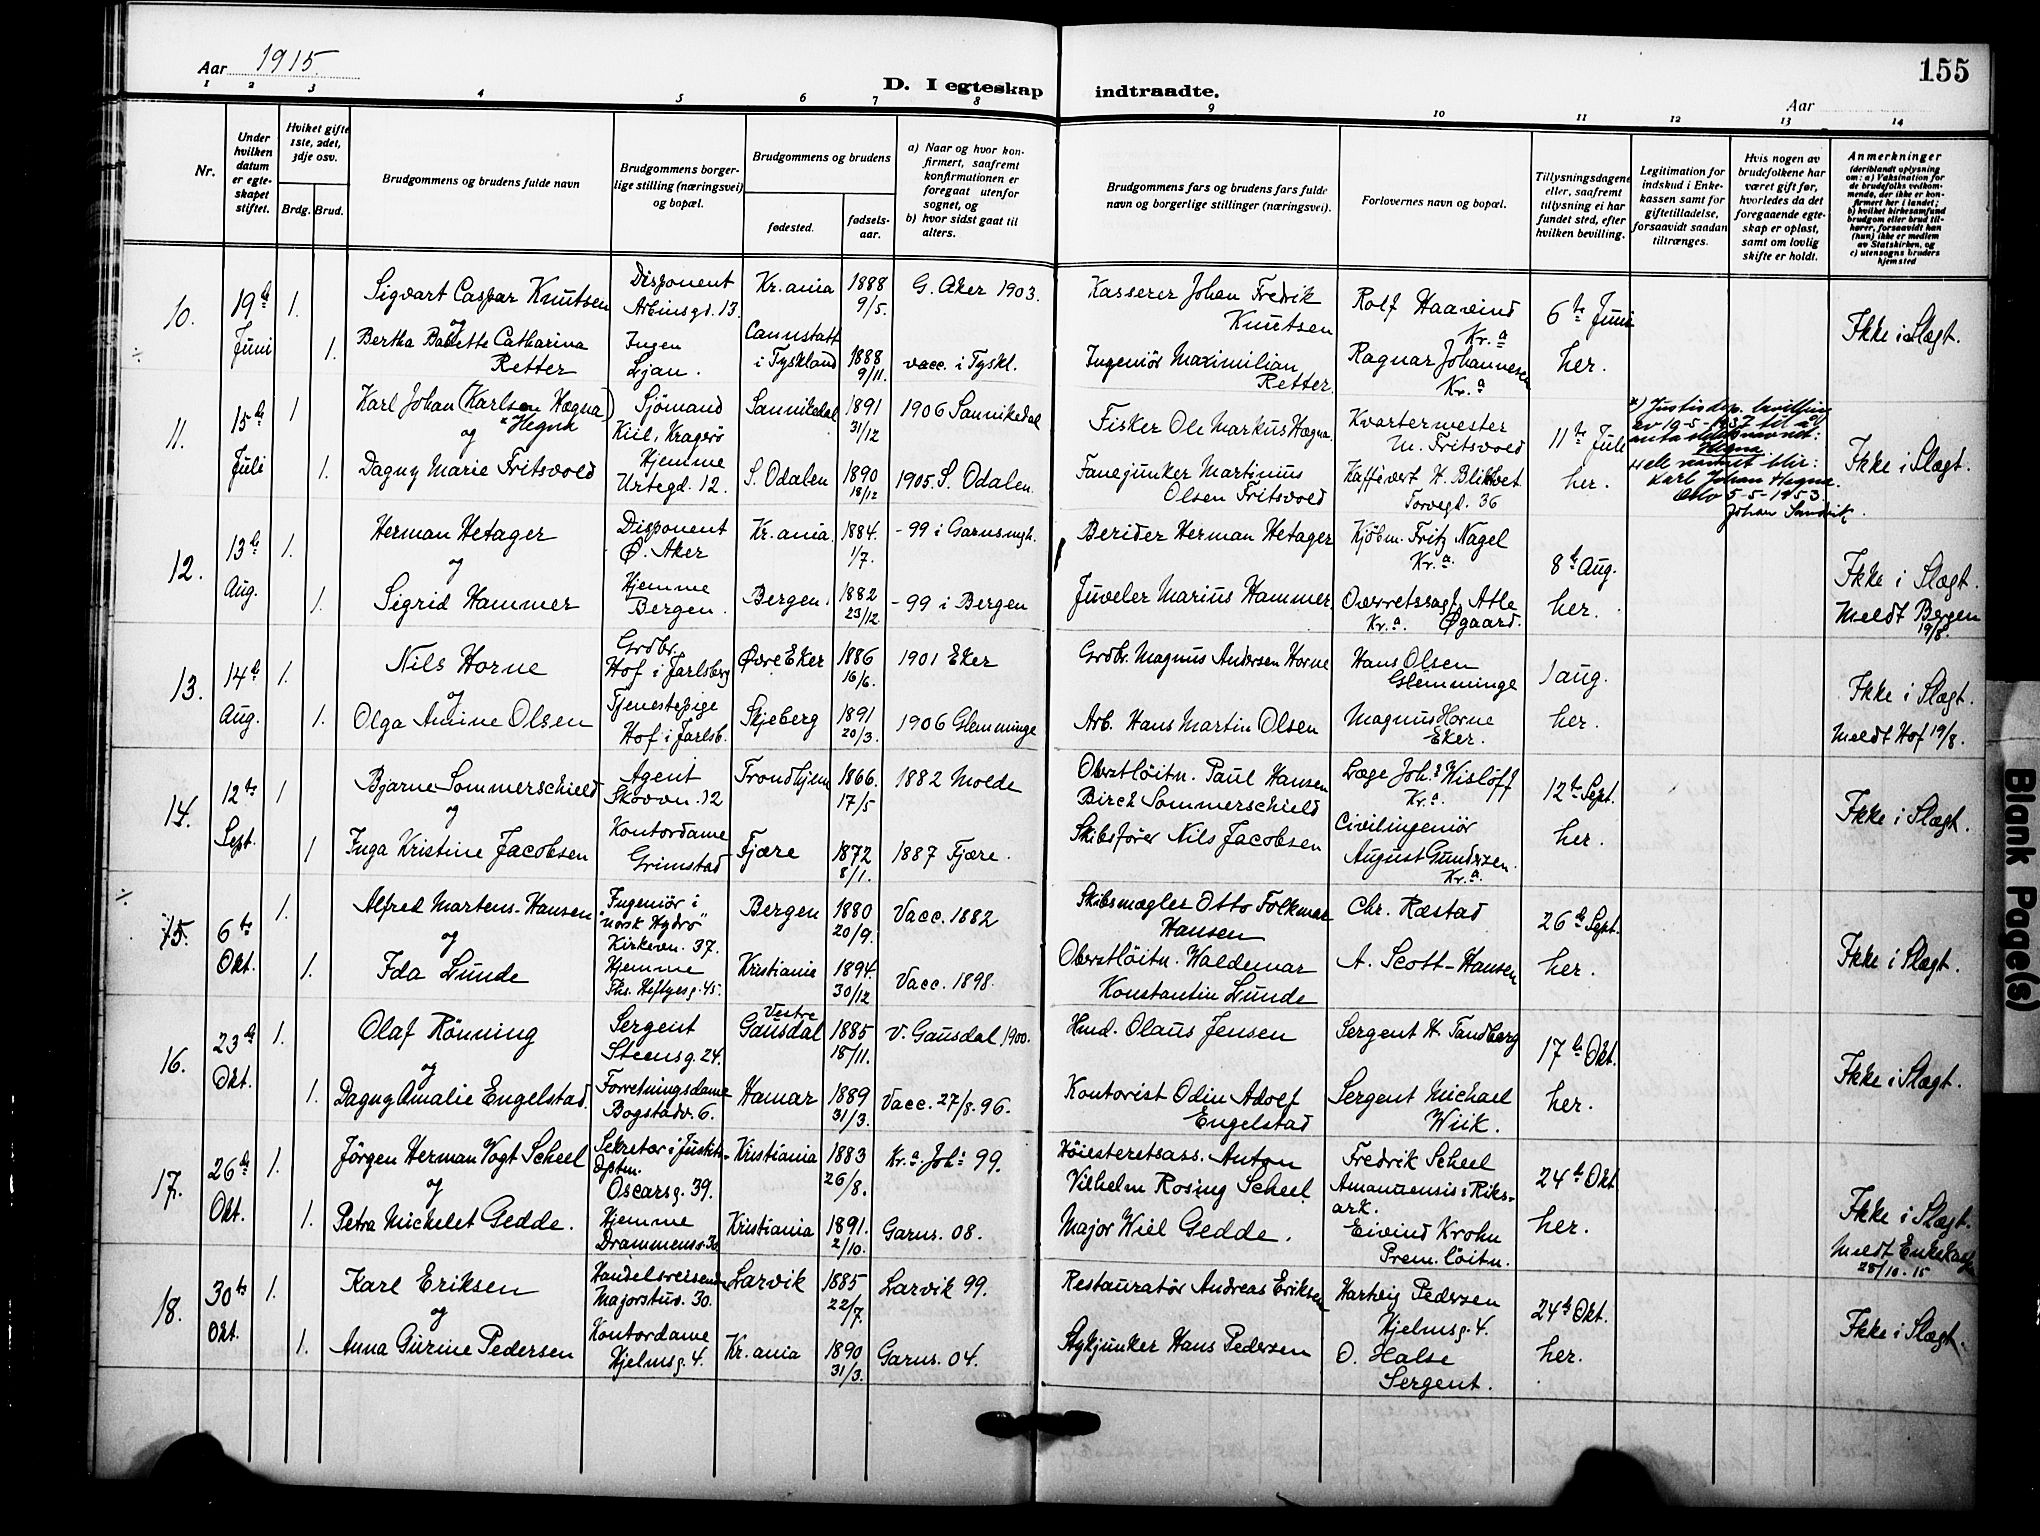 Aar 1915.
D. I egteskap indtraadte.
155
Aar
1 2 3 4 5 6 7 8 9 10 11 12 13 14
Nr.
Under hvilken datum er egte- skapet stiftet.
Hvilket gifte 1ste, 2det, 3dje osv.
Brdg. Brud.
Brudgommens og brudens fulde navn
Brudgommens borger- lige stilling (næringsvei) og bopæl.
Brudgommens og brudens
fødested.
fødsels- aar.
a) Naar og hvor kon- firmert, saafremt konfirmationen er foregaat utenfor sognet, og
b) hvor sidst gaat til alters.
Brudgommens fars og brudens fars fulde navn og borgerlige stillinger (næringsvei).
Forlovernes navn og bopæl.
Tillysningsdagene eller, saafremt tillysning ei har fundet sted, efter hvilken bevilling.
Legitimation for indskud i Enke- kassen samt for giftetilladelse, forsaavidt saadan tiltrænges.
Hvis nogen av brudefolkene har været gift før, hvorledes da det foregaaende egte- skap er opløst, samt om lovlig skifte er holdt.
Anmerkninger (deriblandt oplysning om: a) Vaksination for de brudefolks vedkom- mende, der ikke er kon- firmert her i landet; b) hvilket kirkesamfund brudgom eller brud til- hører, forsaavidt han (hun) ikke er medlem av Statskirken, og c) utensogns bruders hjemsted
10. 19de Juni 1. Sigvart Caspar Knutsen Disponent Arbinsgd. 13. Kr.ania 1888 9/5. G. Aker 1903. Kasserer Johan Fredrik Knutsen Rolf Haavind Kr.a 6te Juni
og
1. Bertha Babette Catharina Retter Ingen Ljan. Cannstatt i Tyskland 1888 9/11. vacc. i Tyskl. Ingeniör Maximilian Retter. Ragnar Johannesen Kr.a her. Ikke i Slægt.
11. 15de Juli 1 Karl Johan (Karlsen Hægna) x Hegna Sjömand Kiil, Kragerø Sannikedal 1891 31/12 1906 Sannikedal Fisker Ole Markus Hægna. Kvartermester M. Fritsvold 11te Juli
x) Justisdep. bevilling av 19-5-1937 til å anta slektsnavnet: Hegna
hele navnet blir: Karl Johan Hegna.
Oslo 5-5-1953.
Johan Sandvik.
og
1. Dagny Marie Fritsvold Hjemme Urtegd. 12. S. Odalen 1890 18/12 1905. S. Odalen. Fanejunker Martinius Olsen Fritsvold Kaffévert H. Blikket Torvegd. 36 her. Ikke i Slægt.
12. 13de Aug. 1. Herman Hetager Disponent Ø. Aker Kr.ania. 1884. 1/7. -99 i Garnsmgh. Berider Herman Hetager Kjöbm. Fritz Nagel Kr.a. 8de Aug.
og
1. Sigrid Hammer Hjemme Bergen. Bergen. 1882 23/12. -99 i Bergen Juveler Marius Hammer Overretssagf. Atle Øgaard. Kr.a. her. Ikke i Slægt. Meldt Bergen 19/8.
13. 14de Aug. 1. Nils Horne Grdbr. Hof i Jarlsberg Øvre Eker 1886 16/6. 1901 Eker Grdbr. Magnus Andersen Horne Hans Olsen Glemminge 1 aug.
og
1. Olga Amine Olsen Tjenestepige Hof i Jarlsb. Skjeberg 1891 20/3. 1906 Glemminge Arb. Hans Martin Olsen Magnus Horne Eker. her. Ikke i Slægt. Meldt Hof 19/8.
14. 12te Sept. 1 Bjarne Sommerschield Agent Skovvn. 12 Trondhjem 1866. 17/5 1882 Molde Oberstlöitn. Paul Hansen Birch Sommerschield Læge Johs Wislöff Kr.a. 12te Sept.
og
1 Inga Kristine Jacobsen Kontordame Grimstad Fjære 1872 8/1. 1887 Fjære. Skibsförer Nils Jacobsen Civilingeniör August Gundersen. Kr.a. her. Ikke i Slægt.
15. 6te Okt. 1. Alfred Martens-Hansen Ingeniör i "Norsk Hydro" Kirkevn. 37. Bergen 1880 20/9. Vacc. 1882 Skibsmægler Otto Folkmar Hansen Chr. Ræstad 26de Sept.
og
1. Ida Lunde Hjemme Ths. Heftyesg. 45. Kristiania 1894. 30/12 Vacc. 1898. Oberstlöitn. Waldemar Konstantin Lunde A. Scott-Hansen her. Ikke i Slægt.
16. 23de Okt. 1. Olaf Rönning Sergent Steensg. 24. Vestre Gausdal 1885 18/11. V. Gausdal 1900. Hmd. Olaus Jensen Sergent H. Tandberg 17de Okt.
og
1. Dagny Amalie Engelstad. Forretningsdame Bogstadv. 6. Hamar 1889 31/3. Vacc. 27/8. 96. Kontorist Odin Adolf Engelstad Sergent Michael Wiik. her. Ikke i Slægt.
17. 26de Okt. 1. Jörgen Herman Vogt Scheel Sekretær i Justits- Dptm. Oscarsg. 39. Kristiania 1883 26/8. Kr.a Joh: 99. Höiesteretsass. Anton Vilhelm Rosing Scheel. Fredrik Scheel Amanuensis i Riks- ark. 24de Okt
og
1. Petra Michelet Gedde. Hjemme Drammensv. 30 Kristiania 1891. 2/10. Garns. 08. Major Wiel Gedde. Eivind Krohn Prem. löitn. her. Ikke i Slægt. Meldt Enkekass. 28/10. 15
18. 30te Okt. 1. Karl Eriksen Handelsreisende Majorstuv. 30. Larvik 1885 22/7. Larvik 99. Restauratør Andreas Eriksen Hartvig Pedersen Hjelmsg. 4. 24de Okt.
og
1. Anna Gurine Pedersen Kontordame Hjelmsg. 4. Kr.ania 1890 31/3. Garns. 04. Stykjunker Hans Pedersen O. Halse Sergent. her. Ikke i Slægt.
Blank Page(s)